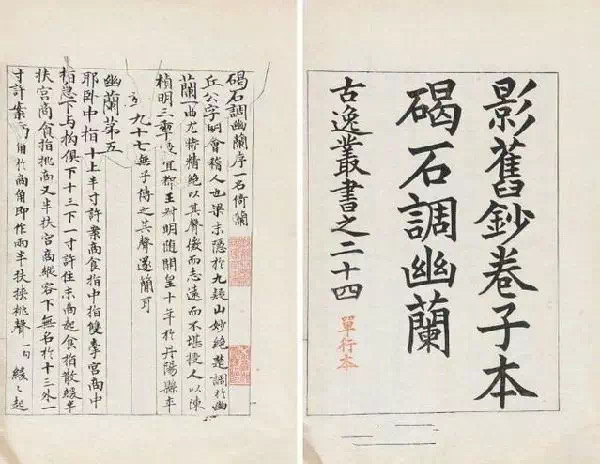 影舊鈔卷子本
碣石調幽蘭
古逸叢書之二十四
單行本
碣石調幽蘭序一名倚蘭
丘公字明會稽人也梁末隱於九疑山妙絕楚調於幽
蘭一曲尤特精絕以其聲微而志遠而不堪授人以陳
楨明三年授宜都王叔明隨開皇十年於丹陽縣卒
年九十七無子傳之其聲遂簡耳
幽蘭第五
耶臥中指十上半寸許案商食指中指雙牽宮商中
指急下与拘俱下十三下一寸許住末商起食指散緩半
扶宮商食指挑商又半扶宮商縱容下無名於十三外一
寸許案商角於商角即作兩半扶挾挑聲一句緩〻起